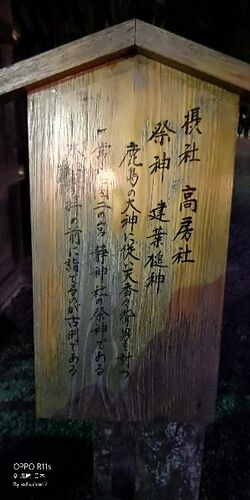 摂社 高房社
祭神 建葉槌神
鹿島の大神に従い天香香背男を討つ
常陸国二の宮 静神社の祭神である
拝の前に詣でるのが古例である
OPPO R11s